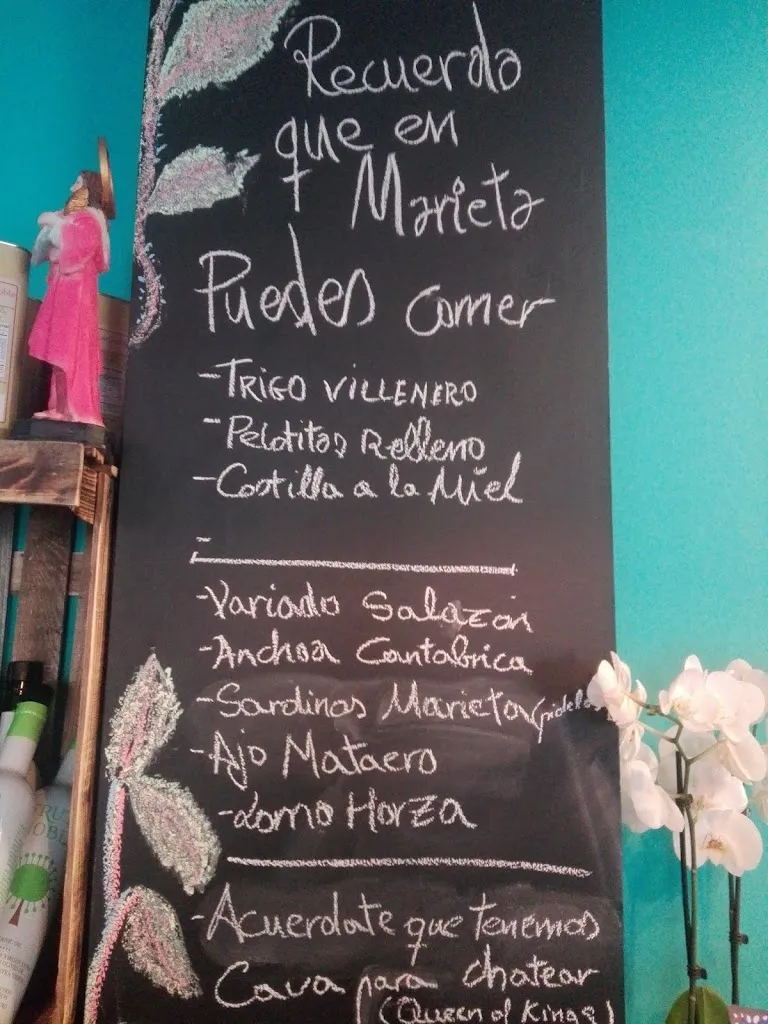 Recuerda
que en
Marieta
Puedes comer
-TRIGO VILLENERO
-Pelotitas Relleno
-Costilla a la Miel
-
-Variado Salazón
-Anchoa Cantabrica
-Sardinas Marieta (pidela
-Ajo Mataero
-Lomo Horza
-Acuerdate que tenemos
Cava para chatear
(Queen of Kings)